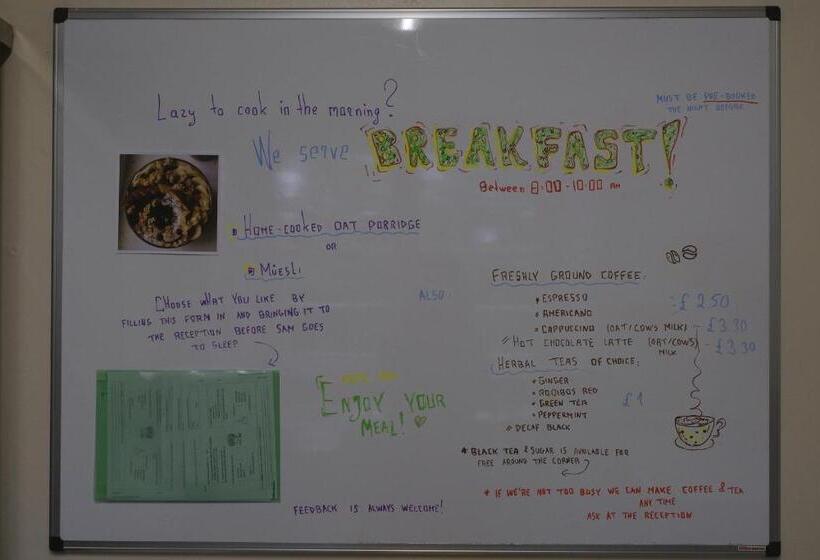 Lazy to cook in the morning?
MUST BE PRE-BOOKED
THE NIGHT BEFORE
We serve BREAKFAST!
Between 8:00-10:00 AM
HOME-COOKED OAT PORRIDGE
OR
MÜESLI
CHOOSE WHAT YOU LIKE BY
FILLING THIS FORM IN AND BRINGING IT TO
THE RECEPTION BEFORE SAM GOES
TO SLEEP
ALSO:
FRESHLY GROUND COFFEE:
• ESPRESSO
• AMERICANO
£2.50
• CAPPUCCINO (OAT/COW'S MILK) - £3.30
HOT CHOCOLATE LATTE (OAT/COW'S) - £3.30
MILK
HERBAL TEAS OF CHOICE:
• GINGER
• ROOIBOS RED
• GREEN TEA £1
• PEPPERMINT
DECAF BLACK
* BLACK TEA & SUGAR IS AVAILABLE FOR
FREE AROUND THE CORNER
ENJOY YOUR
MEAL!
FEEDBACK IS ALWAYS WELCOME!
* IF WE'RE NOT TOO BUSY WE CAN MAKE COFFEE & TEA
ANY TIME
ASK AT THE RECEPTION